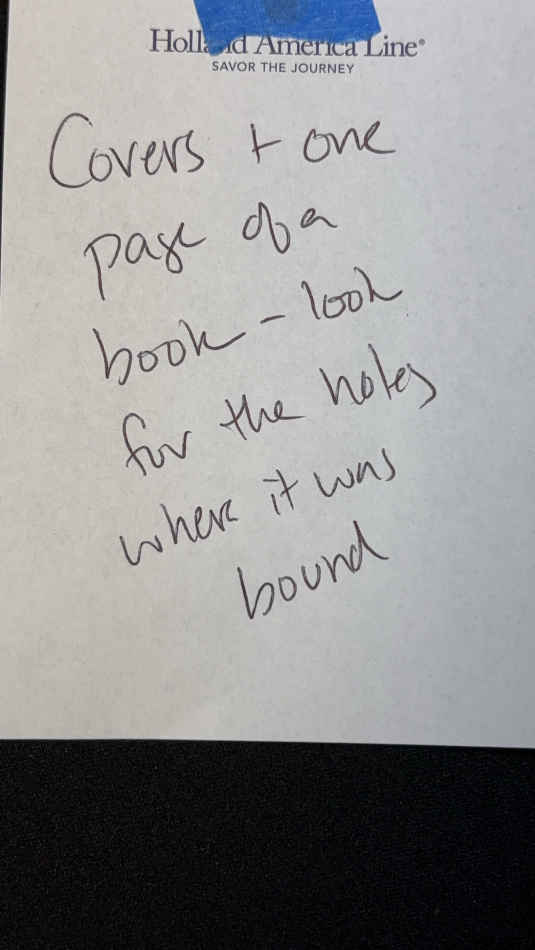 Holland America Line®
SAVOR THE JOURNEY
Covers + one
page of a
book - look
for the holes
where it was
bound